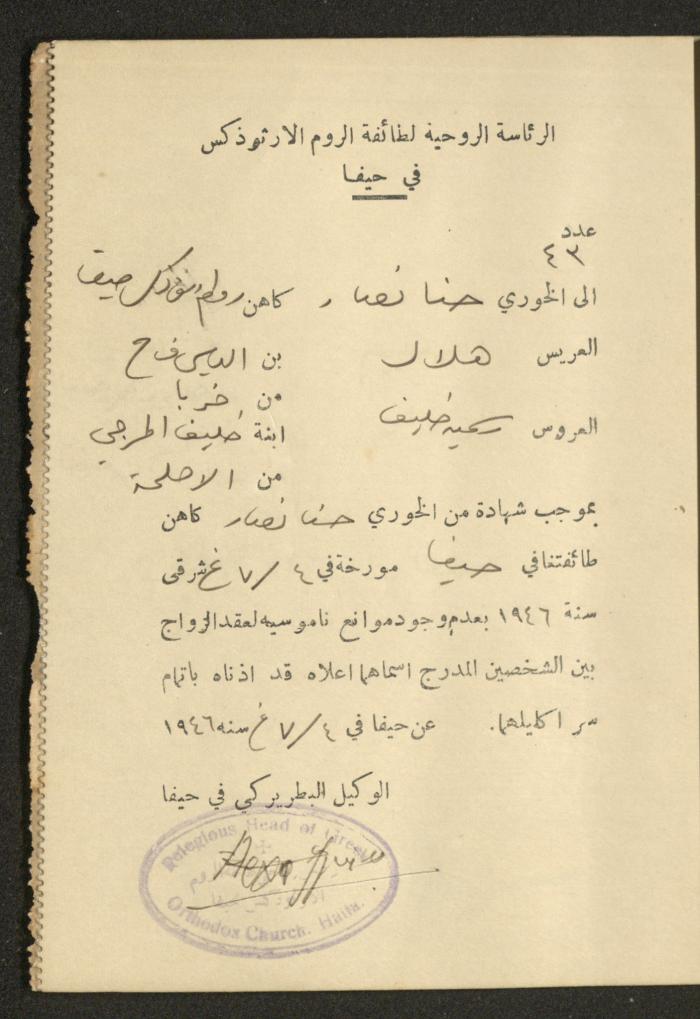 الرئاسة الروحية لطائفة الروم الارثوذكس
في حيفا
عدد
٤٣
الى الخوري حنا نصار كاهن روم ارثوذكس حيفا
العريس هلال بن الياس فرح
من خربا
العروس سميه خليف ابنة خليف المرجي
من
بموجب شهادة من الخوري حنا نصار كاهن
طائفتنا في حيفا مورخة في ٤/٧ غ شرقي
سنة ١٩٤٦ بعدم وجود موانع ناموسيه لعقد الزواج
بين الشخصين المدرج اسماهما اعلاه قد اذناه باتمام
سر اكليلهما. عن حيفا في ٤/٧ غ سنه ١٩٤٦
الوكيل البطريركي في حيفا
Relegious Head of Greek
Orthodox Church. Haifa.